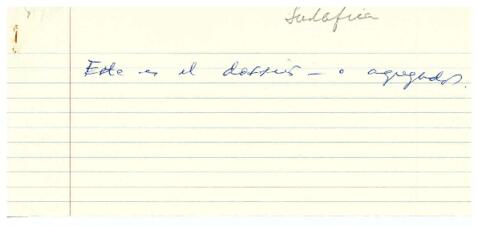 Sudáfrica
Este es el dossier – o agregados.